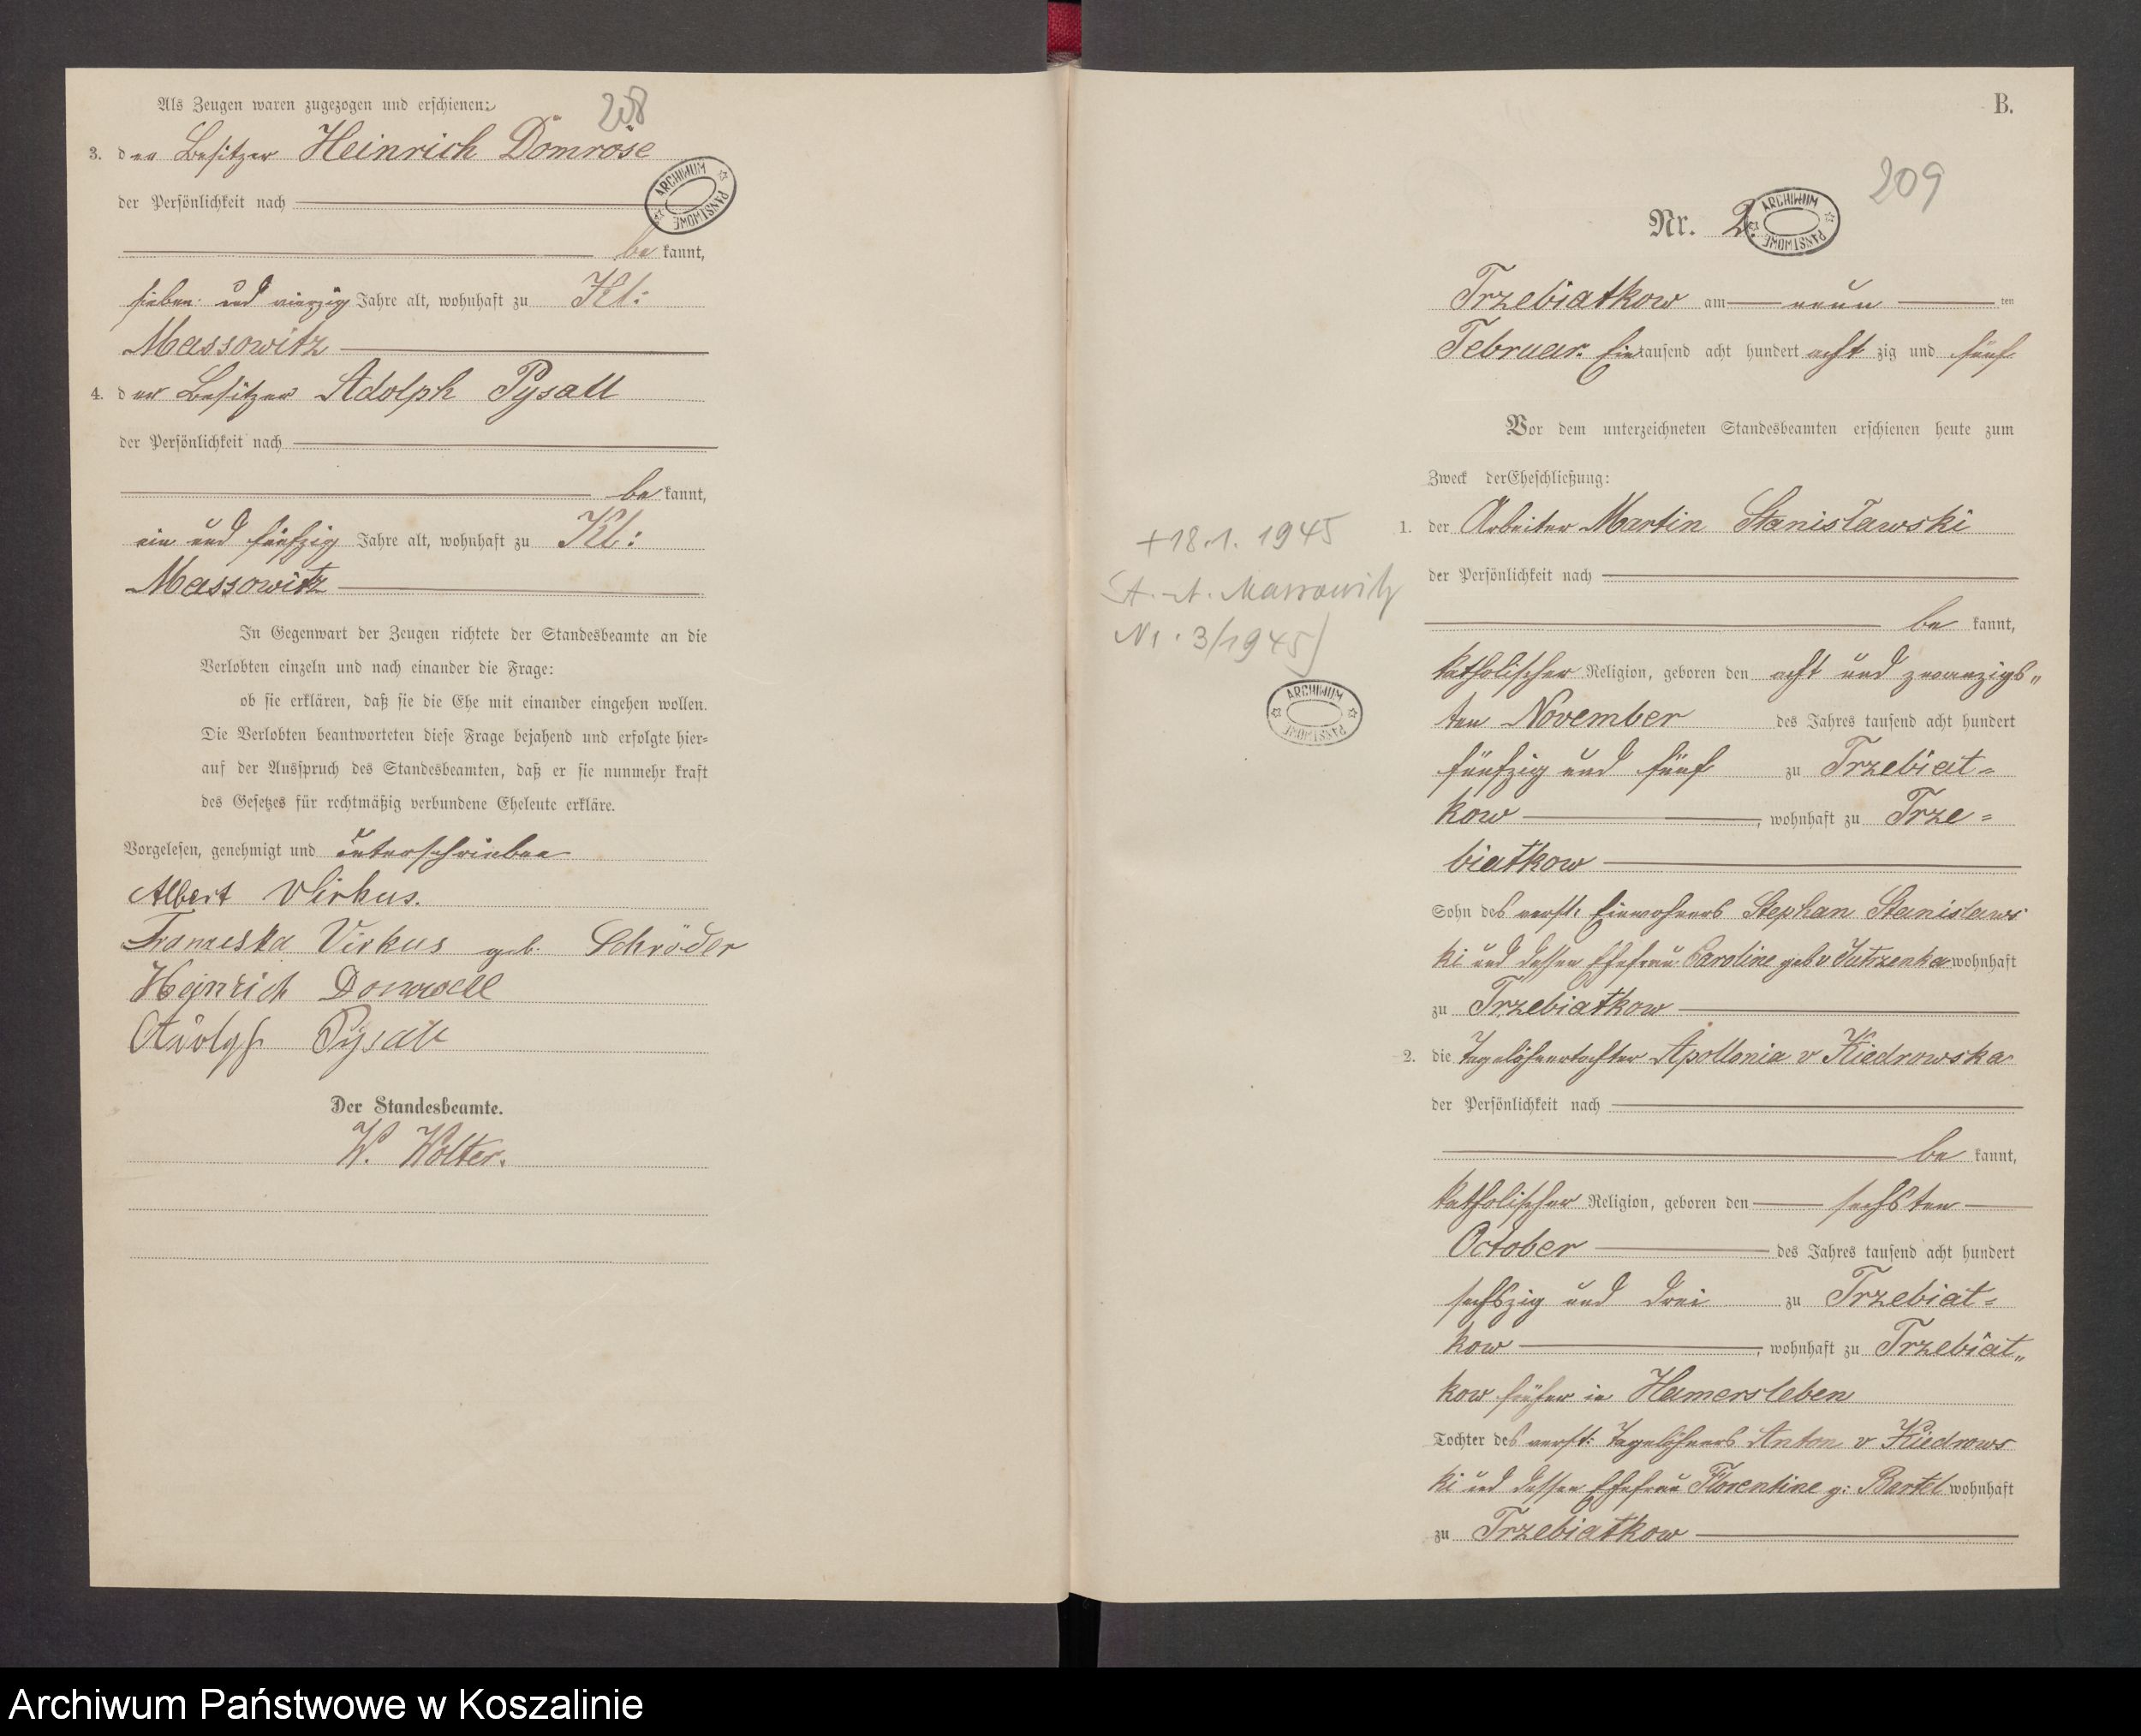 Als Zeugen waren zugezogen und erschienen:
208
3. der Besitzer Heinrich Domröse
der Persönlichkeit nach
be kannt,
sieben und vierzig Jahre alt, wohnhaft zu Kl:
Massowitz
4. der Besitzer Adolph Pysall
der Persönlichkeit nach
be kannt,
ein und fünfzig Jahre alt, wohnhaft zu Kl:
Massowitz
In Gegenwart der Zeugen richtete der Standesbeamte an die
Verlobten einzeln und nach einander die Frage:
ob sie erklären, daß sie die Ehe mit einander eingehen wollen.
Die Verlobten beantworteten diese Frage bejahend und erfolgte hier-
auf der Ausspruch des Standesbeamten, daß er sie nunmehr kraft
des Gesetzes für rechtmäßig verbundene Eheleute erkläre.
Vorgelesen, genehmigt und unterschrieben
Albert Virkus.
Franziska Virkus geb. Schröder
Heinrich
Adolph Pysall
Der Standesbeamte.
W. Wolter.
ARCHIWUM PAŃSTWOWE
B.
209
Nr. 2.
ARCHIWUM PAŃSTWOWE
Trzebiatkow am neun ten
Februar. Eintausend acht hundert acht zig und fünf
Vor dem unterzeichneten Standesbeamten erschienen heute zum
Zweck der Eheschließung:
1. der Arbeiter Martin Stanislawski
der Persönlichkeit nach
be kannt,
katholischer Religion, geboren den acht und zwanzigs"
ten November des Jahres tausend acht hundert
fünfzig und fünf zu Trzebiat-
kow, wohnhaft zu Trze-
biatkow
Sohn des verst: Einwohners Stephan Stanislaws
ki und dessen Ehefrau Caroline geb v Jutrzenka wohnhaft
zu Trzebiatkow
2. die Tagelöhnertochter Apollonia v Kiedrowska
der Persönlichkeit nach
be kannt,
katholischer Religion, geboren den sechsten
October des Jahres tausend acht hundert
sechszig und drei zu Trzebiat-
kow, wohnhaft zu Trzebiat"
kow früher in Hamersleben
Tochter des verst: Tagelöhners Anton v Kiedrows
ki und dessen Ehefrau Florentine g: Bartel wohnhaft
zu Trzebiatkow
+18.1.1945
St.-A. Massowitz
Nr. 3/1945)
ARCHIWUM PAŃSTWOWE
Archiwum Państwowe w Koszalinie